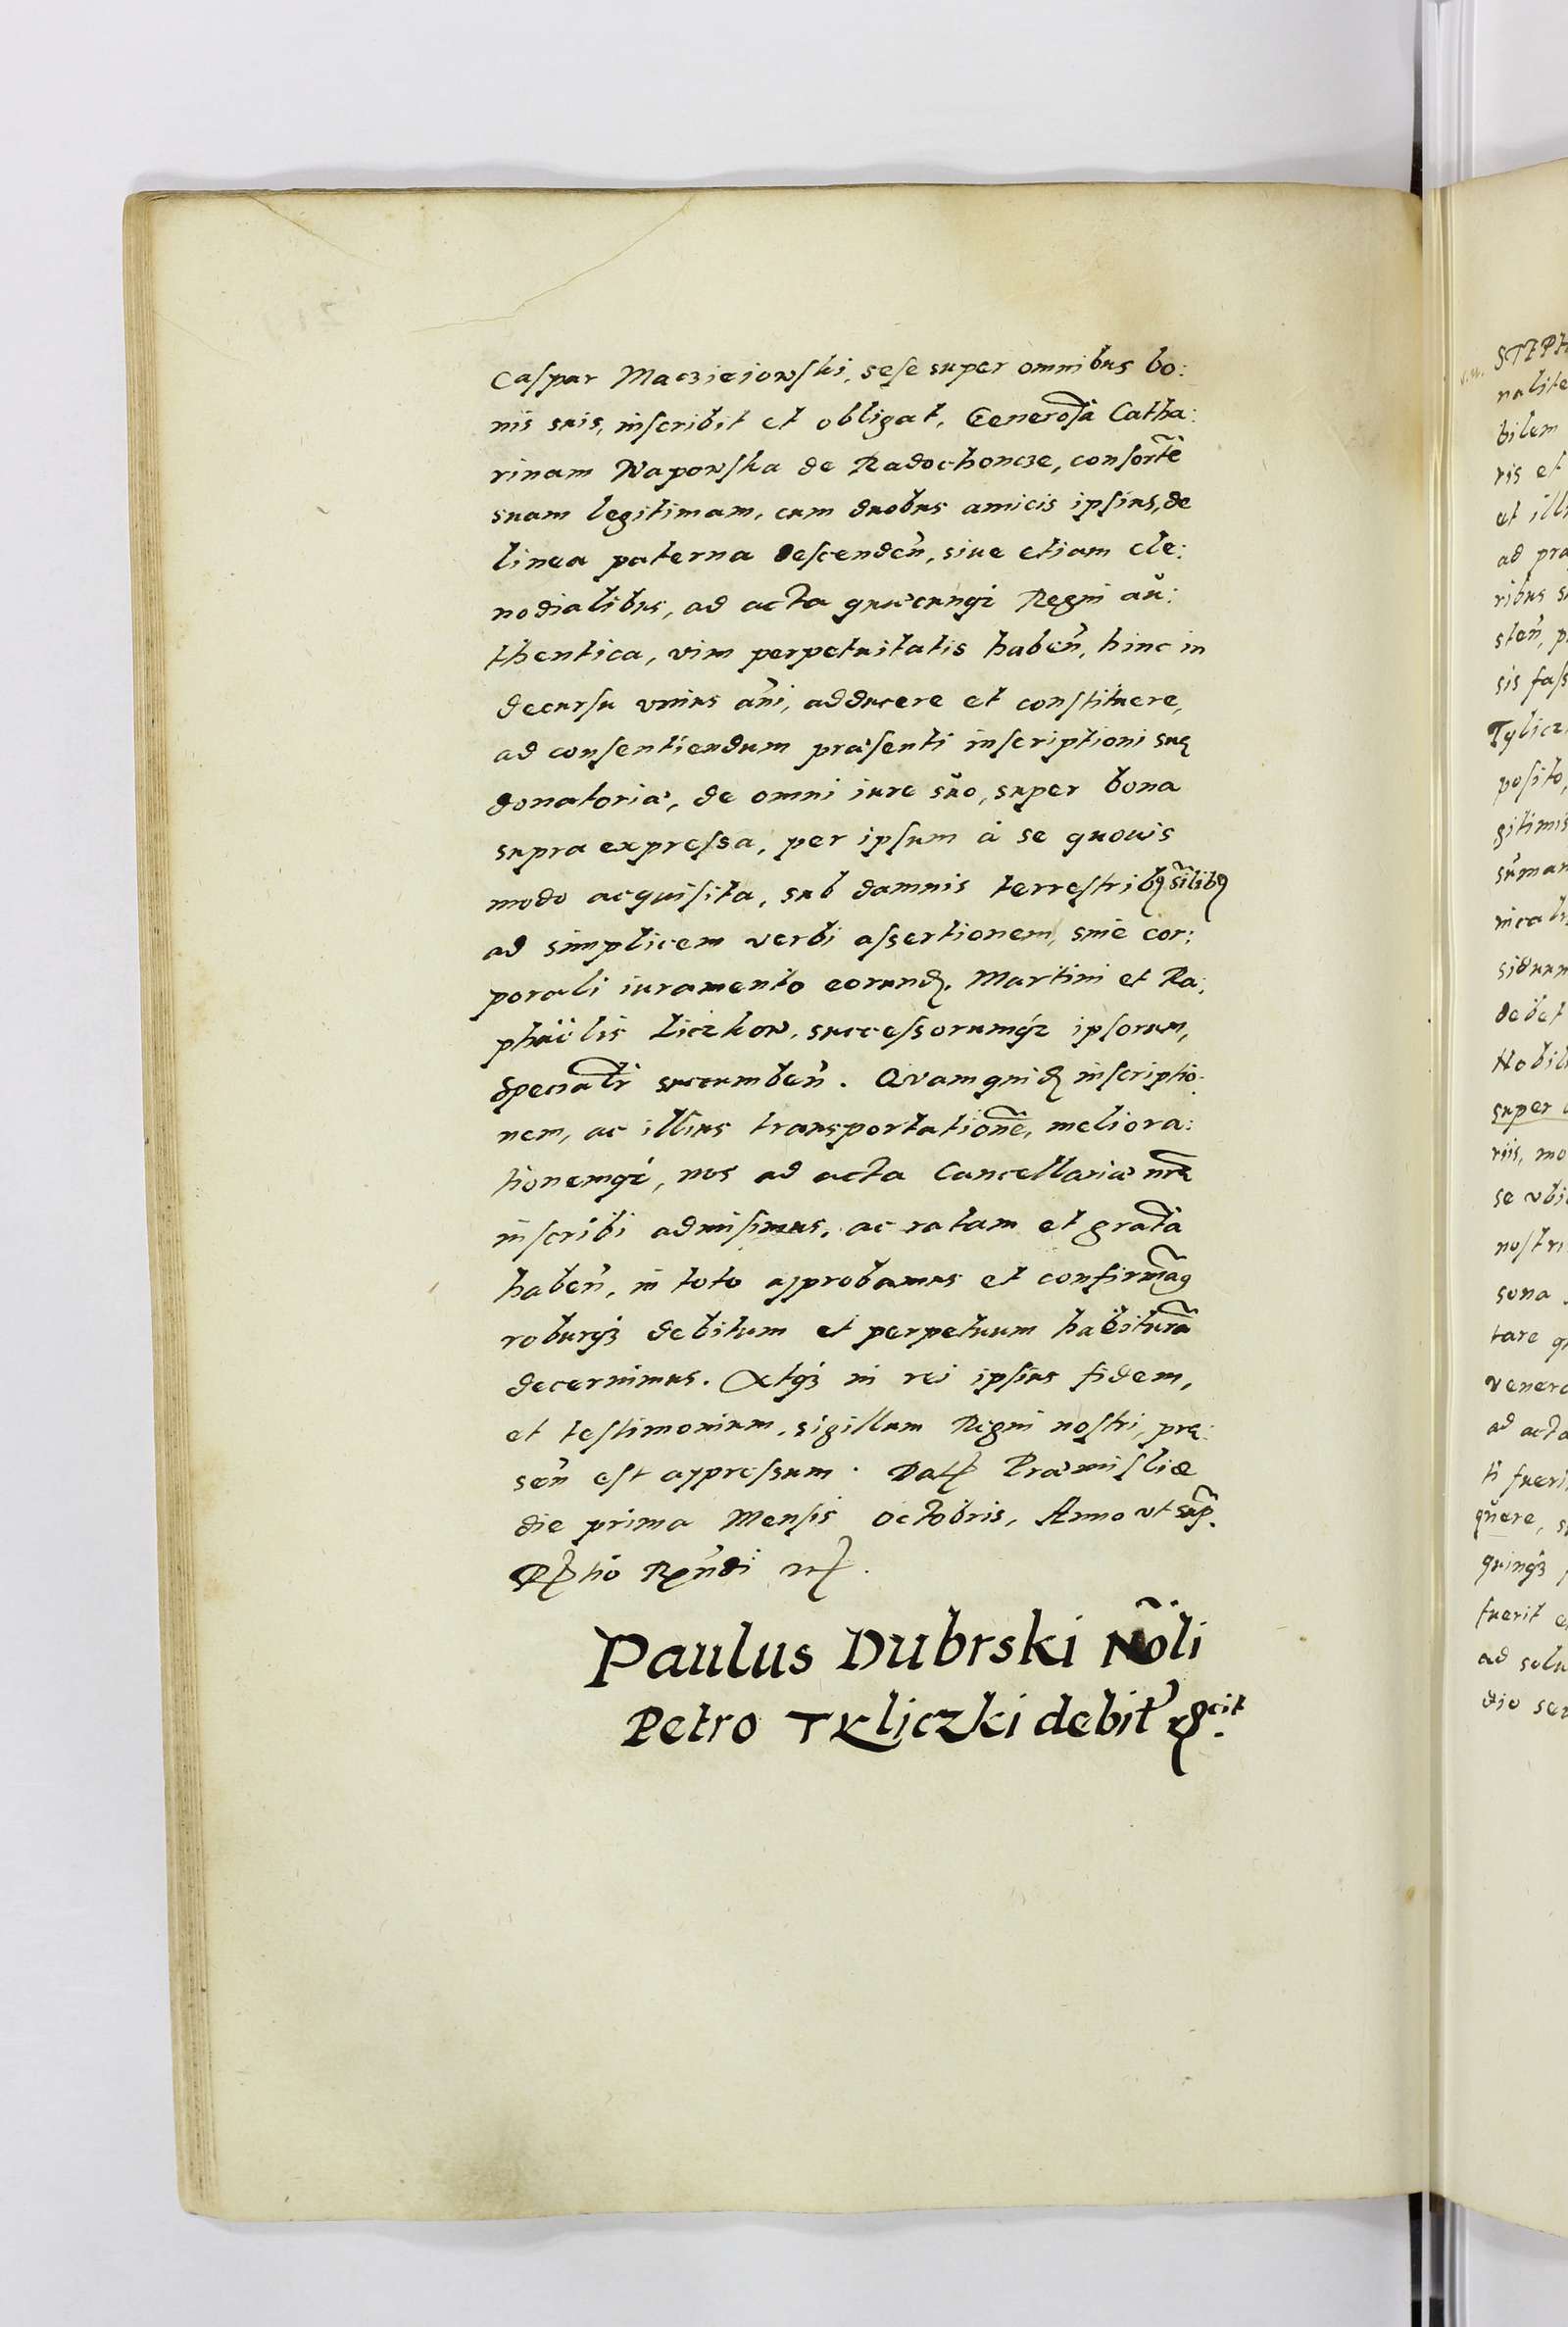 Caspar Maczieiowski, sese super omnibus bo:
nis suis, inscribit et obligat, Generosã Catha:
rinam Wapowska de Radochoncze, consortẽ
suam legitimam, cum duobus amicis ipsius, de
linea paterna descendeñ, siue etiam cle:
nodialibus, ad acta quæcunqȝ Regni au:
thentica, vim perpetuitatis habeñ, hinc in
decursu vnius añi, adducere et constituere,
ad consentiendum præsenti inscriptioni suę
donatoriæ, de omni iure suo, super bona
supra expressa, per ipsum à se quouis
modo acquisita, sub damnis terrestribꝰ sĩlibꝰ
ad simplicem verbi assertionem, sine cor:
porali iuramento eorund. Martini et Ra:
phaëlis Liczkow, successorumqȝ ipsorum,
specialr̃ succumbeñ. Quamquid inscriptio:
nem, ac illius transportationẽ, meliora:
tionemqȝ, nos ad acta Cancellariæ nr̃æ
inscribi admisimus, ac ratam et gratã
habeñ, in toto approbamus et confirmãꝰ
roburqȝ debitum et perpetuum habiturã
decernimus. Atqȝ in rei ipsius fidem,
et testimonium, sigillum Regni nostri, prę:
señ est appressum. Dat Præmisliæ
die prima Mensis Octobris, Anno vt sup̃.
Rltio Rñdi
Paulus Dubrski Nõli
Petro Tyliczki debit'
STEPH
nalite
bilem
ris et
et ill
ad pra
ribus s
steñ, p
sis fass
Tylicz
posito,
gitimis
sum̃a
nicali
siduum
debet
Nobil
super
riis, mo
se vbi
nostri
sona
tare q
venera
ad acta
ti fueri
quere, s
quinqȝ
fuerit e
ad solu
dio se